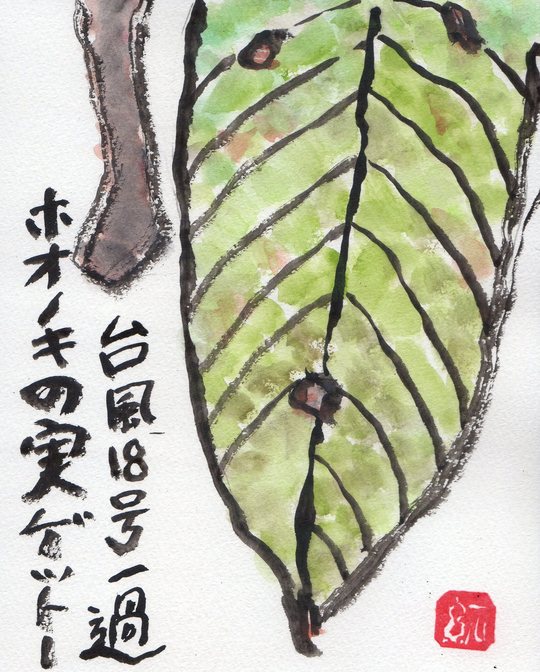 台風18号一過
ホオノキの実ゲットー